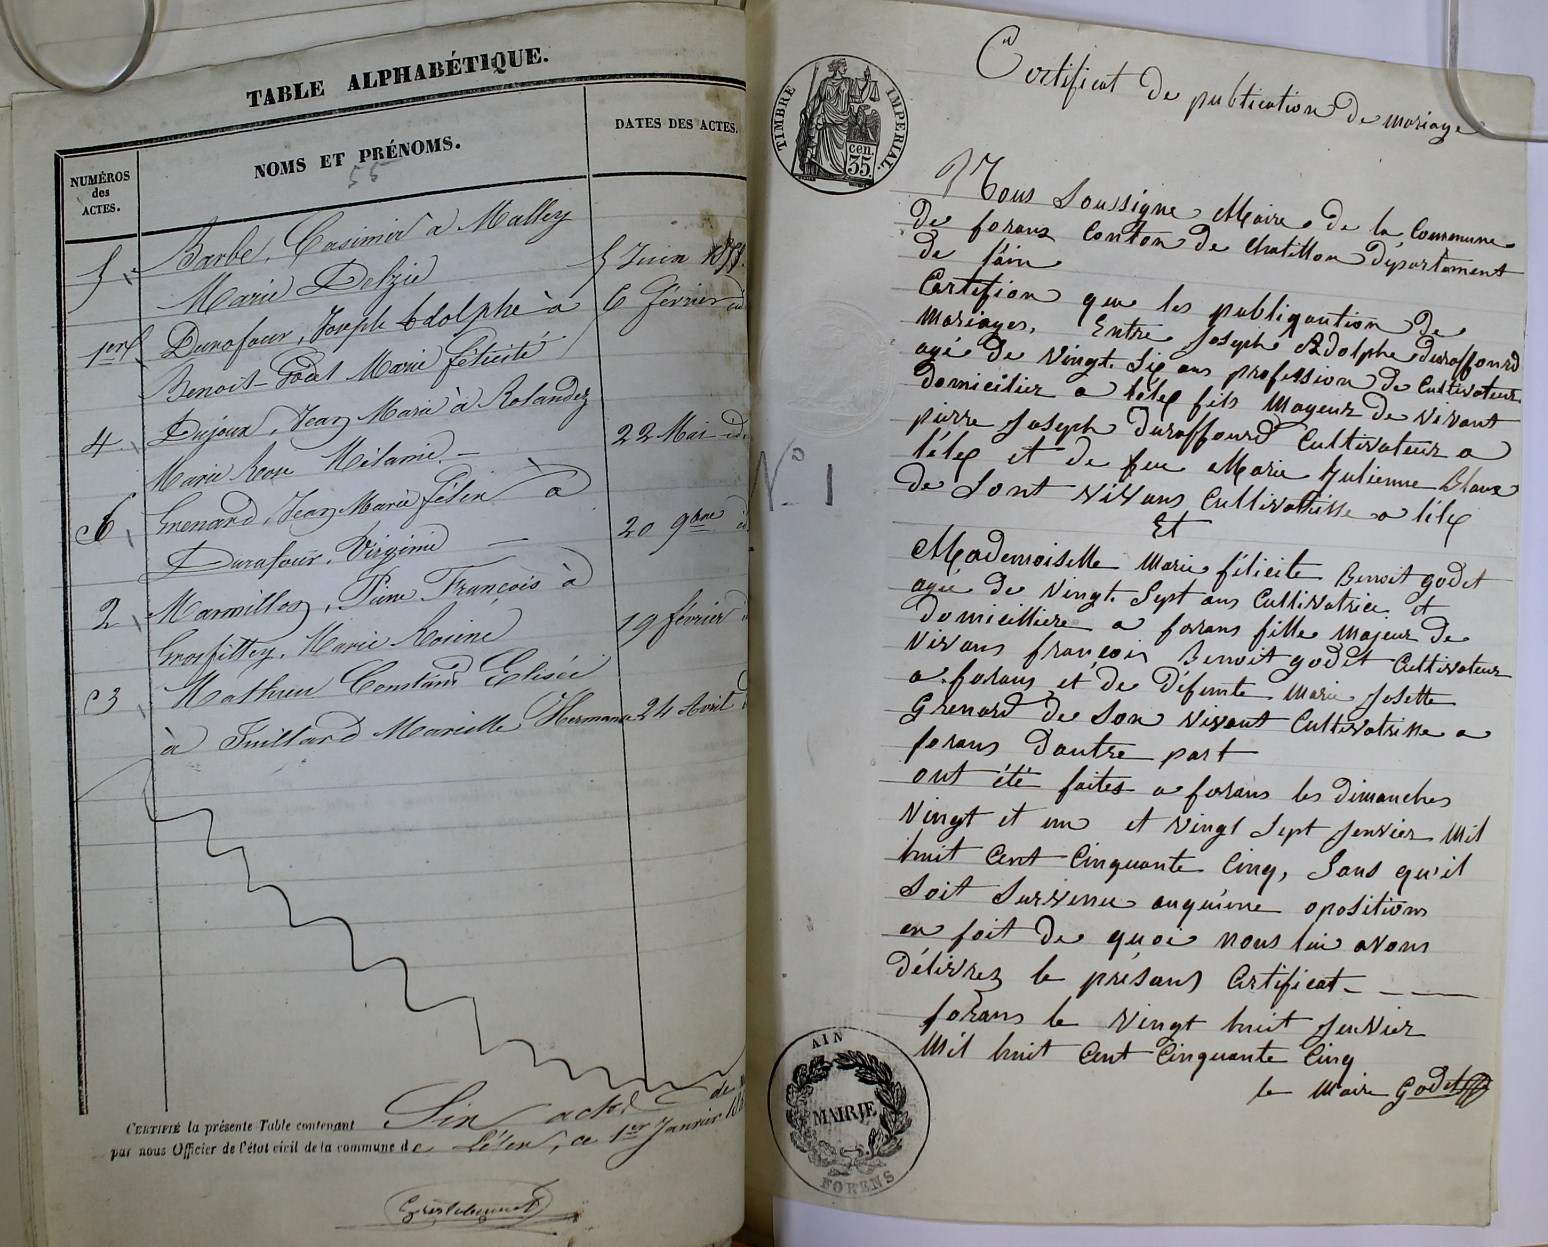 TABLE ALPHABÉTIQUE.
NUMÉROS
des
ACTES.
NOMS ET PRÉNOMS.
DATES DES ACTES.
55
5 Barbe, Casimir à Malley
Marie Delzie 5 Juin 1855.
1er Durafour, Joseph Adolphe à 6 février id
Benoit-Godet Marie félicité
4 Dujoux, Jean Marie à Rolandez
Marie Rose Mélanie. — 22 Mai id.
6 Grenard, Jean Marie félix à
Durafour, Virginie — 20 9bre id
2 Marmillon, Pierre François à
Grosfilley, Marie Rosine 19 février
3 Mathieu Constant Elisée
à Juillard Marcelle, Hermance 24 Avril
CERTIFIÉ la présente Table contenant Six actes
par nous Officier de l'état civil de la commune de Lélex, ce 1er Janvier
TIMBRE IMPERIAL.
35 cen.
Certificat de publication de mariage
Nous Soussigne Maire de la Commune
de forans Conton de Chatillon département
de l'ain
Certifion que les publiquution de
Mariages, Entre Joseph Adolphe duraffourd
agé de vingt Six ans profession de Cultivateur
domicilier a léléx fils mageur de vivant
pierre Joseph duraffourd Cultivateur a
léléx et de feu Marie Julienne Blanc
de Sont vivans Cultivatrisse a léléx
Et
N° 1
Mademoiselle Marie félicité Benoit godet
agée de vingt Sept ans Cultivatrice et
domicilliere a forans fille majeur de
vivans françois Benoit godet Cultivateur
a forans et de défunte Marie Josette
Grenard de Son vivant Cultivatrisse a
forans dautre part
ont été faites a forans les dimanches
vingt et un et vingt Sept Jenvier Mil
huit Cent Cinquante Cinq, Sans qu'il
Soit Survenu auquéune opositions
en foit de quoi nous lui avons
délivrez le présans Certificat - - -
forans le vingt huit Jenvier
Mil huit Cent Cinquante Cinq
le Maire Godet
AIN
MAIRIE
FORENS